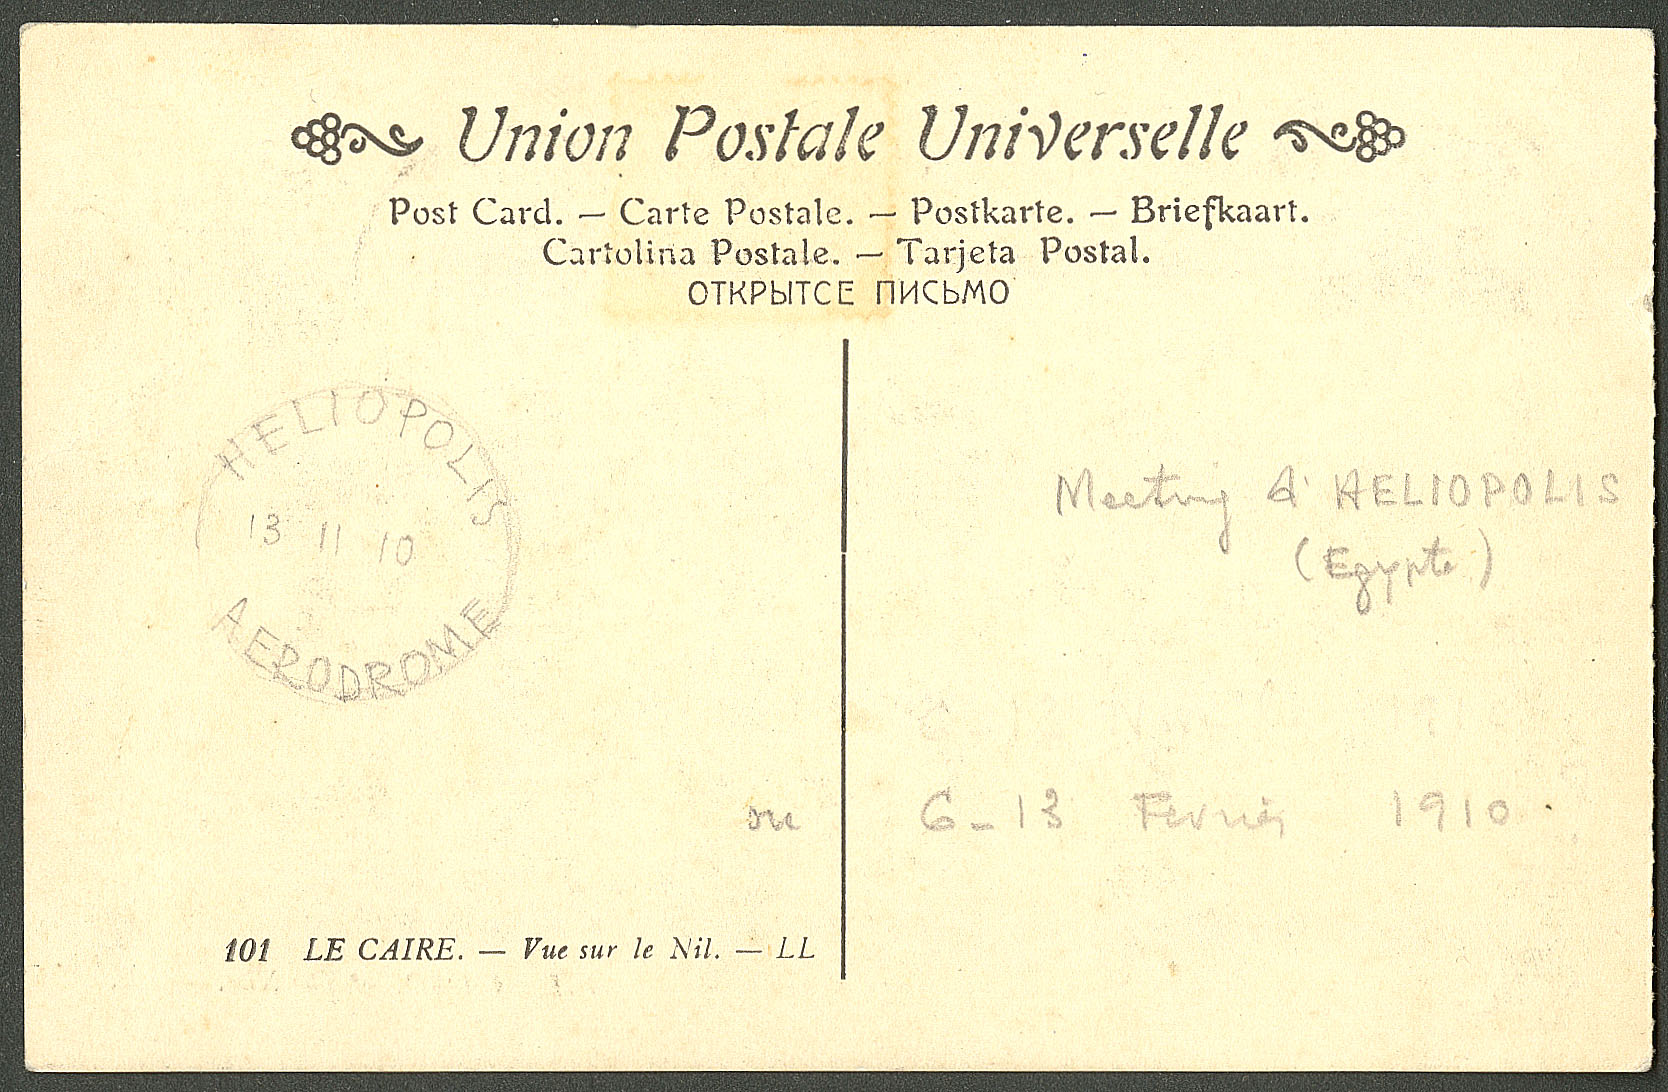 Union Postale Universelle
Post Card. — Carte Postale. — Postkarte. — Briefkaart.
Cartolina Postale. — Tarjeta Postal.
ОТКРЫТСЕ ПИСЬМО
HELIOPOLIS
13 11 10
AERODROME
Meeting d'HELIOPOLIS
(Egypte)
6-13 Fevrier 1910
101 LE CAIRE. — Vue sur le Nil. — LL